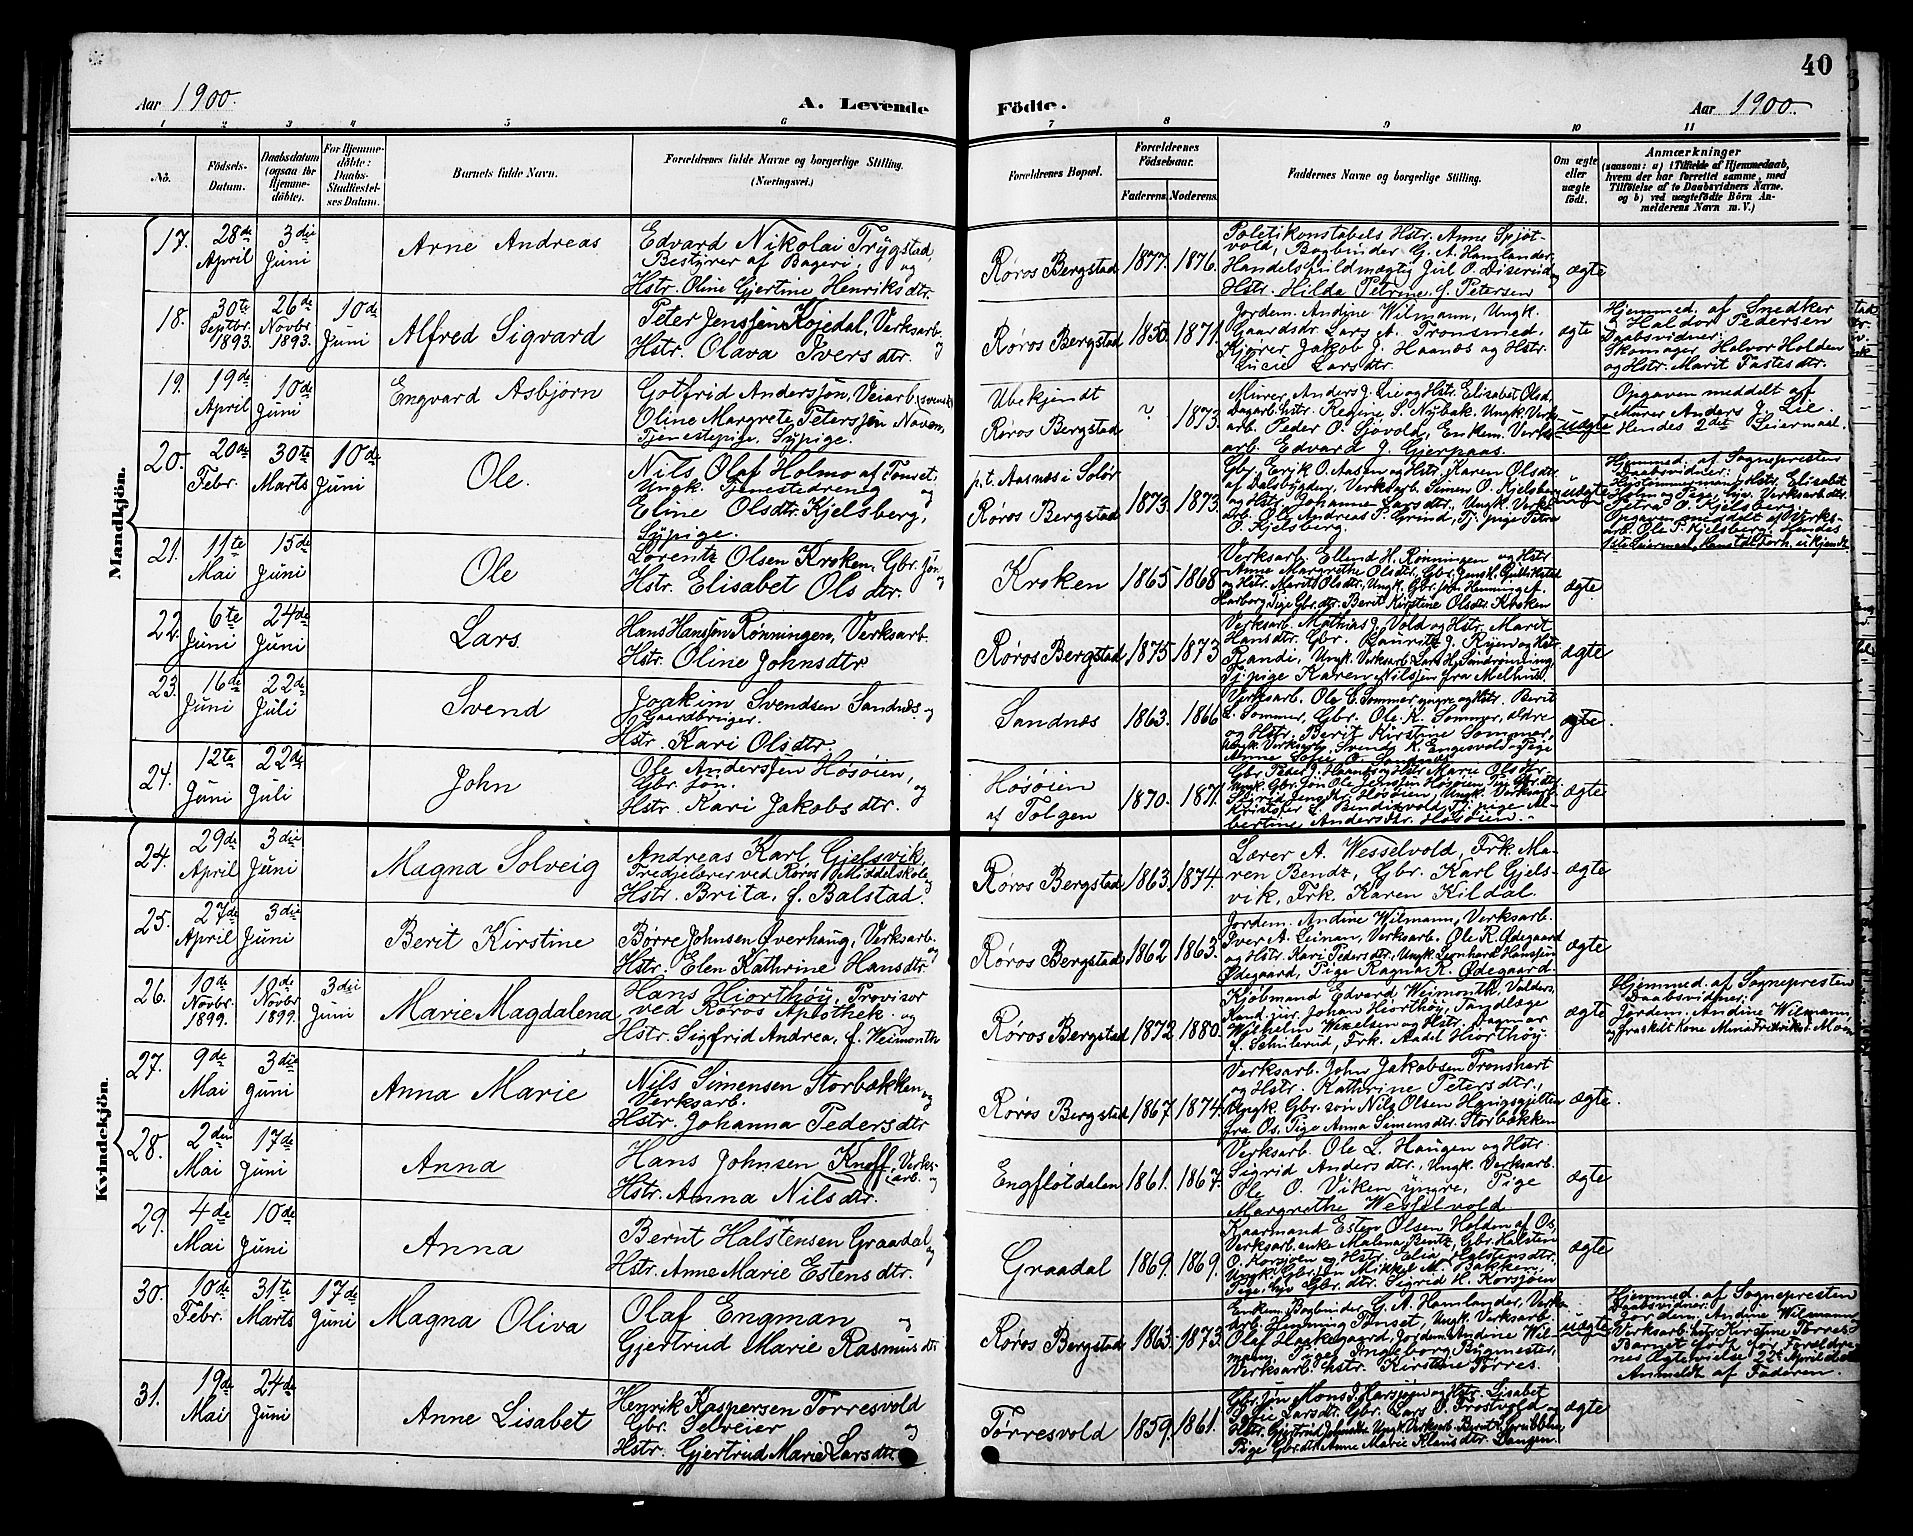 40
Aar 1900.
A. Levende
Födte.
Aar 1900.
1 2 3 4 5 6 7 8 9 10 11
No.
Födsels-Datum.
Daabsdatum (ogsaa for Hjemmedöbte).
For Hjemmedöbte: Daabs-Stadfæstelses Datum.
Barnets fulde Navn.
Forældrenes fulde Navne og borgerlige Stilling.
(Næringsvei.)
Forældrenes Bopæl.
Forældrenes Födselsaar.
Faderens. Moderens.
Faddernes Navne og borgerlige Stilling.
Om ægte eller uægte födt.
Anmærkninger
(saasom: a) i Tilfælde af Hjemmedaab,
hvem der har forrettet samme, med
Tilföielse af to Daabsvidners Navne.
og b) ved uægtefödte Börn Anmelderens Navn m. V.)
Mandkjön.
17. 28de April 3die Juni
Arne Andreas
Edvard Nikolai Trygstad,
Bestyrer af Bageri, og
Hstr. Oline Gjertine Henriksdtr.
Røros Bergstad 1877. 1876.
Politikonstabels Hstr. Anne Spjøtvold, Bogbinder G. A. Hamlander,
Handelsfuldmægtig Jul O. Diserud,
Hstr. Hilda Petrine f. Petersen
ægte
18. 30te Septbr. 1893. 26de Novbr. 1893. 10de Juni
Alfred Sigvard
Peter Jenssen Kojedal, Verksarb. og
Hstr. Olava Iversdtr.
Røros Bergstad 1850. 1871.
Jordem. Andine Wilmann, Ungk.
Gaardsdr. Lars A. Tronsmed,
Kjører Jakob J. Haanæs og Hstr.
Lucie Larsdtr.
ægte
Hjemmed. af Snedker
Haldor Pedersen
Daabsvidner:
Skomager Halvor Holden
og Hstr. Marit Fastesdtr.
19. 19de April 10de Juni
Engvard Asbjørn
Gotfrid Anderssøn, Veiarb. (svensk)
Oline Margrete Peterssen Naven,
Tjenestepige, Sypige.
Ubekjendt
Røros Bergstad ? 1873.
Murer Anders J. Lie og Hstr. Elisabet Olsd.
Dagarb. Hstr. Regine S. Nybak, Ungk. Verksarb. Peder O. Sjøvold, Enkem. Verksarb. Edvard J. Gjerpaas.
uægte
Opgaven meddelt af
Murer Anders J. Lie.
Hendes 2det Leiermaal.
20. 20de Febr. 30te Marts 10de Juni
Ole.
Nils Olaf Holmo af Tønset,
Ungk. Tjenestedreng og
Eline Olsdtr. Kjelsberg,
Sypige.
p.t. Aasnæs i Solør
Røros Bergstad 1873. 1873.
Gbr. Erik O. Aasen og Hstr. Karen Olsdtr.
af Dalsbygden, Verksarb. Simen O. Kjelsberg
og Hstr. Johanne Larsdtr., Ungk. Verksarb. Ole Andreas P. Grind, Tj. pige Petra
O. Kjelsberg.
uægte
Hjemmed. af Sognepresten
Daabsvidner:
21. 11te Mai 15de Juni
Ole
Lorentz Olsen Kroken, Gbr. søn og
Hstr. Elisabet Olsdtr.
Kroken 1865 1868
Verksarb. Ellend H. Rønningen og Hstr.
Anne Margrethe Olsdtr.
ægte
22. 6te Juni 24de Juni
Lars.
Hans Hanssen Rønningen, Verksarb.
Hstr. Oline Johnsdtr.
Røros Bergstad 1875 1873
Verksarb. Mathias J. Vold og Hstr. Marit
Hansdtr. Gbr. Lauritz J. Ryen og Hstr.
Randi, Ungk. Verksarb. Lars H. Sandrønning
Tj. pige Karen Nilsen fra Melhus.
ægte
23. 16de Juni 22de Juli
Svend
Joakim Svendsen Sandnæs og
Gaardbruger.
Hstr. Kari Olsdtr.
Sandnæs 1863. 1866
Verksarb. Ole E. Sommer yngre og Hstr. Berit
L. Sommer, Gbr. Ole K. Sommer, ældre
og Hstr. Berit Kirstine Sommer,
Ungk. Verksarb. Svend K. Engesvold, Pige
Anne Sofie O. Sandnæs.
ægte.
24. 12te Juni 22de Juli
John
Ole Anderssen Høsøien,
Gbr. søn. og
Hstr. Kari Jakobsdtr.
Høsøien
af Tolgen 1870. 1871.
bertine Andersdtr. Høsøien.
ægte
Kvindekjön.
24. 29de April 3die Juni
Magna Solveig
Andreas Karl Gjelsvik,
Tredjelærer ved Røros Middelskole og
Hstr. Brita, f. Balstad.
Røros Bergstad 1863. 1874.
Lærer A. Wesselvold, Frk. Maren Bendz, Gbr. Karl Gjelsvik, Frk. Karen Kildal.
ægte
25. 27de April 3die Juni
Berit Kirstine
Børre Johnsen Øverhaug, Verksarb. og
Hstr. Elen Kathrine Hansdtr.
Røros Bergstad 1862 1863.
Jordem. Andine Wilmann, Verksarb.
Iver A. Leinan, Verksarb. Ole R. Ødegaard
og Hstr. Kari Pedersdtr., Ungk. Leonhard Hanssen
Ødegaard, Pige Ragna R. Ødegaard.
ægte
26. 10de Novbr. 1899. 10de Novbr. 1899. 3die Juni
Marie Magdalena
Hans Hiorthøy, Provisor
ved Røros Apothek. og
Hstr. Sigfrid Andrea, f. Weimonth
Røros Bergstad 1872 1880.
Kjøbmand Edvard Weimonth. Valders,
Kand. jur. Johan Hiorthøy, Tandlæge
Wilhelm Wexelsen og Hstr. Dagmar
f. Schulerud, Frk. Aadel Hiorthøy.
ægte
Hjemmed. af Sognepresten
Daabsvidner:
Jordem. Andine Wilmann,
27. 9de Mai 3die Juni
Anna Marie
Nils Simensen Storbækken, og
Verksarb.
Hstr. Johanna Pedersdtr
Røros Bergstad 1867. 1874.
Verksarb. John Jakobsen Tronshart
og Hstr. Kathrine Petersdtr.,
Ungk. Gbr. søn Nils Olsen Haugsgjelten
fra Os. Pige Anna Simensdtr. Storbækken
ægte.
28. 2den Mai 17de Juni
Anna
Hans Johnsen Knoff, Verksarb. og
Hstr. Anna Nilsdtr.
Engfløtdalen 1861. 1867.
Verksarb. Ole L. Haugen og Hstr.
Sigrid Andersdtr., Ungk. Verksarb.
Ole O. Viken yngre, Pige
Margrethe Wesselvold.
ægte
29. 4de Mai 10de Juni
Anna
Bernt Halstensen Graadal og
Hstr. Anne Marie Estensdtr.
Graadal 1869. 1869.
Kaarmand Esten Olsen Holden af Os,
Verksarb. enke Malena Bentz, Gbr. Halsten
O. Korsjøen og Hstr. Elia Halstensdtr.
Ungk. Gbr. søn Mikkel M. Bakken,
Pige, hjv. Gbr. dtr. Sigrid H. Korsjøen
ægte
30. 10de Febr. 31te Marts 17de Juni
Magna Oliva
Olaf Engman og
Gjertrud Marie Rasmusdtr
Røros Bergstad 1863. 1873.
Enkem. Bogbinder G. A. Hamlander, Verksarb. Henning Tønset, Ungk. Verksarb.
Olaf Haakegaard, Jordem. Andine Wilmann, Pige Ingeborg Bygmester,
Verksarb. Hstr. Kirstine Tørres.
uægte
Hjemmed. af Sognepresten
Daabsvidner:
Jordem. Andine Wilmann og
Verksarb. Hstr. Kirstine Tørres.
Barnet født før Forældrenes Ægtevielse 22de April d.A.
Anmeldt af Faderen.
31. 19de Mai 24de Juni
Anne Lisabet
Henrik Kaspersen Tørresvold
Gbr. Selveier og
Hstr. Gjertrud Marie Larsdtr.
Tørresvold 1859. 1861.
Gbr. søn Mons J. Harsjøen og Hstr. Lisabet
Sofie Larsdtr. Gbr. Lars O. Trostvold og
Pige Gbr. dtr. Anne Marie Klausdtr. Langen.
ægte